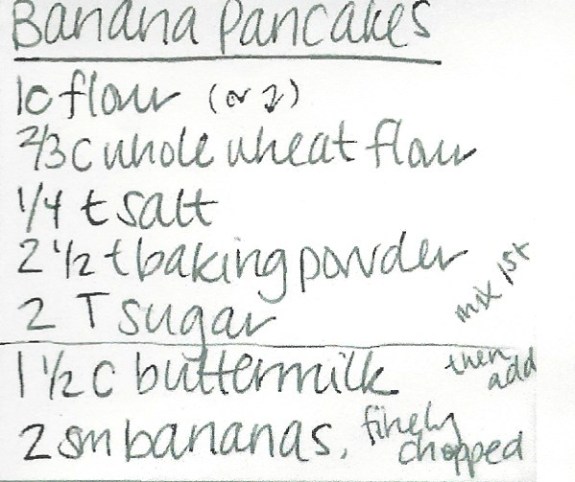 Banana Pancakes
1c flour (or 2)
2/3 c whole wheat flour
1/4 t salt
2 1/2 t baking powder
2 T sugar
mix 1st
1 1/2 c buttermilk
then add
2 sm bananas, finely chopped